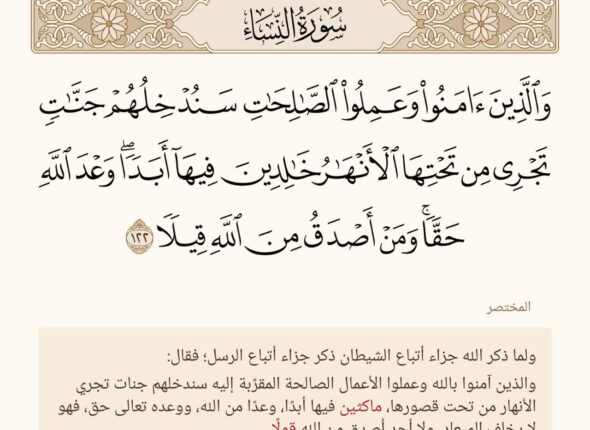 سُورَةُ النِّسَاءِ
وَٱلَّذِينَ ءَامَنُوا۟ وَعَمِلُوا۟ ٱلصَّٰلِحَٰتِ سَنُدْخِلُهُمْ جَنَّٰتٍ
تَجْرِى مِن تَحْتِهَا ٱلْأَنْهَٰرُ خَٰلِدِينَ فِيهَآ أَبَدًۭا ۖ وَعْدَ ٱللَّهِ
حَقًّۭا ۚ وَمَنْ أَصْدَقُ مِنَ ٱللَّهِ قِيلًۭا ١٢٢
المختصر
ولما ذكر الله جزاء أتباع الشيطان ذكر جزاء أتباع الرسل؛ فقال:
والذين آمنوا بالله وعملوا الأعمال الصالحة المقرّبة إليه سندخلهم جنات تجري
الأنهار من تحت قصورها، ماكثين فيها أبدًا، وعدًا من الله، ووعده تعالى حق، فهو
لا يخلف الميعاد، ولا أحد أصدق من الله قولًا